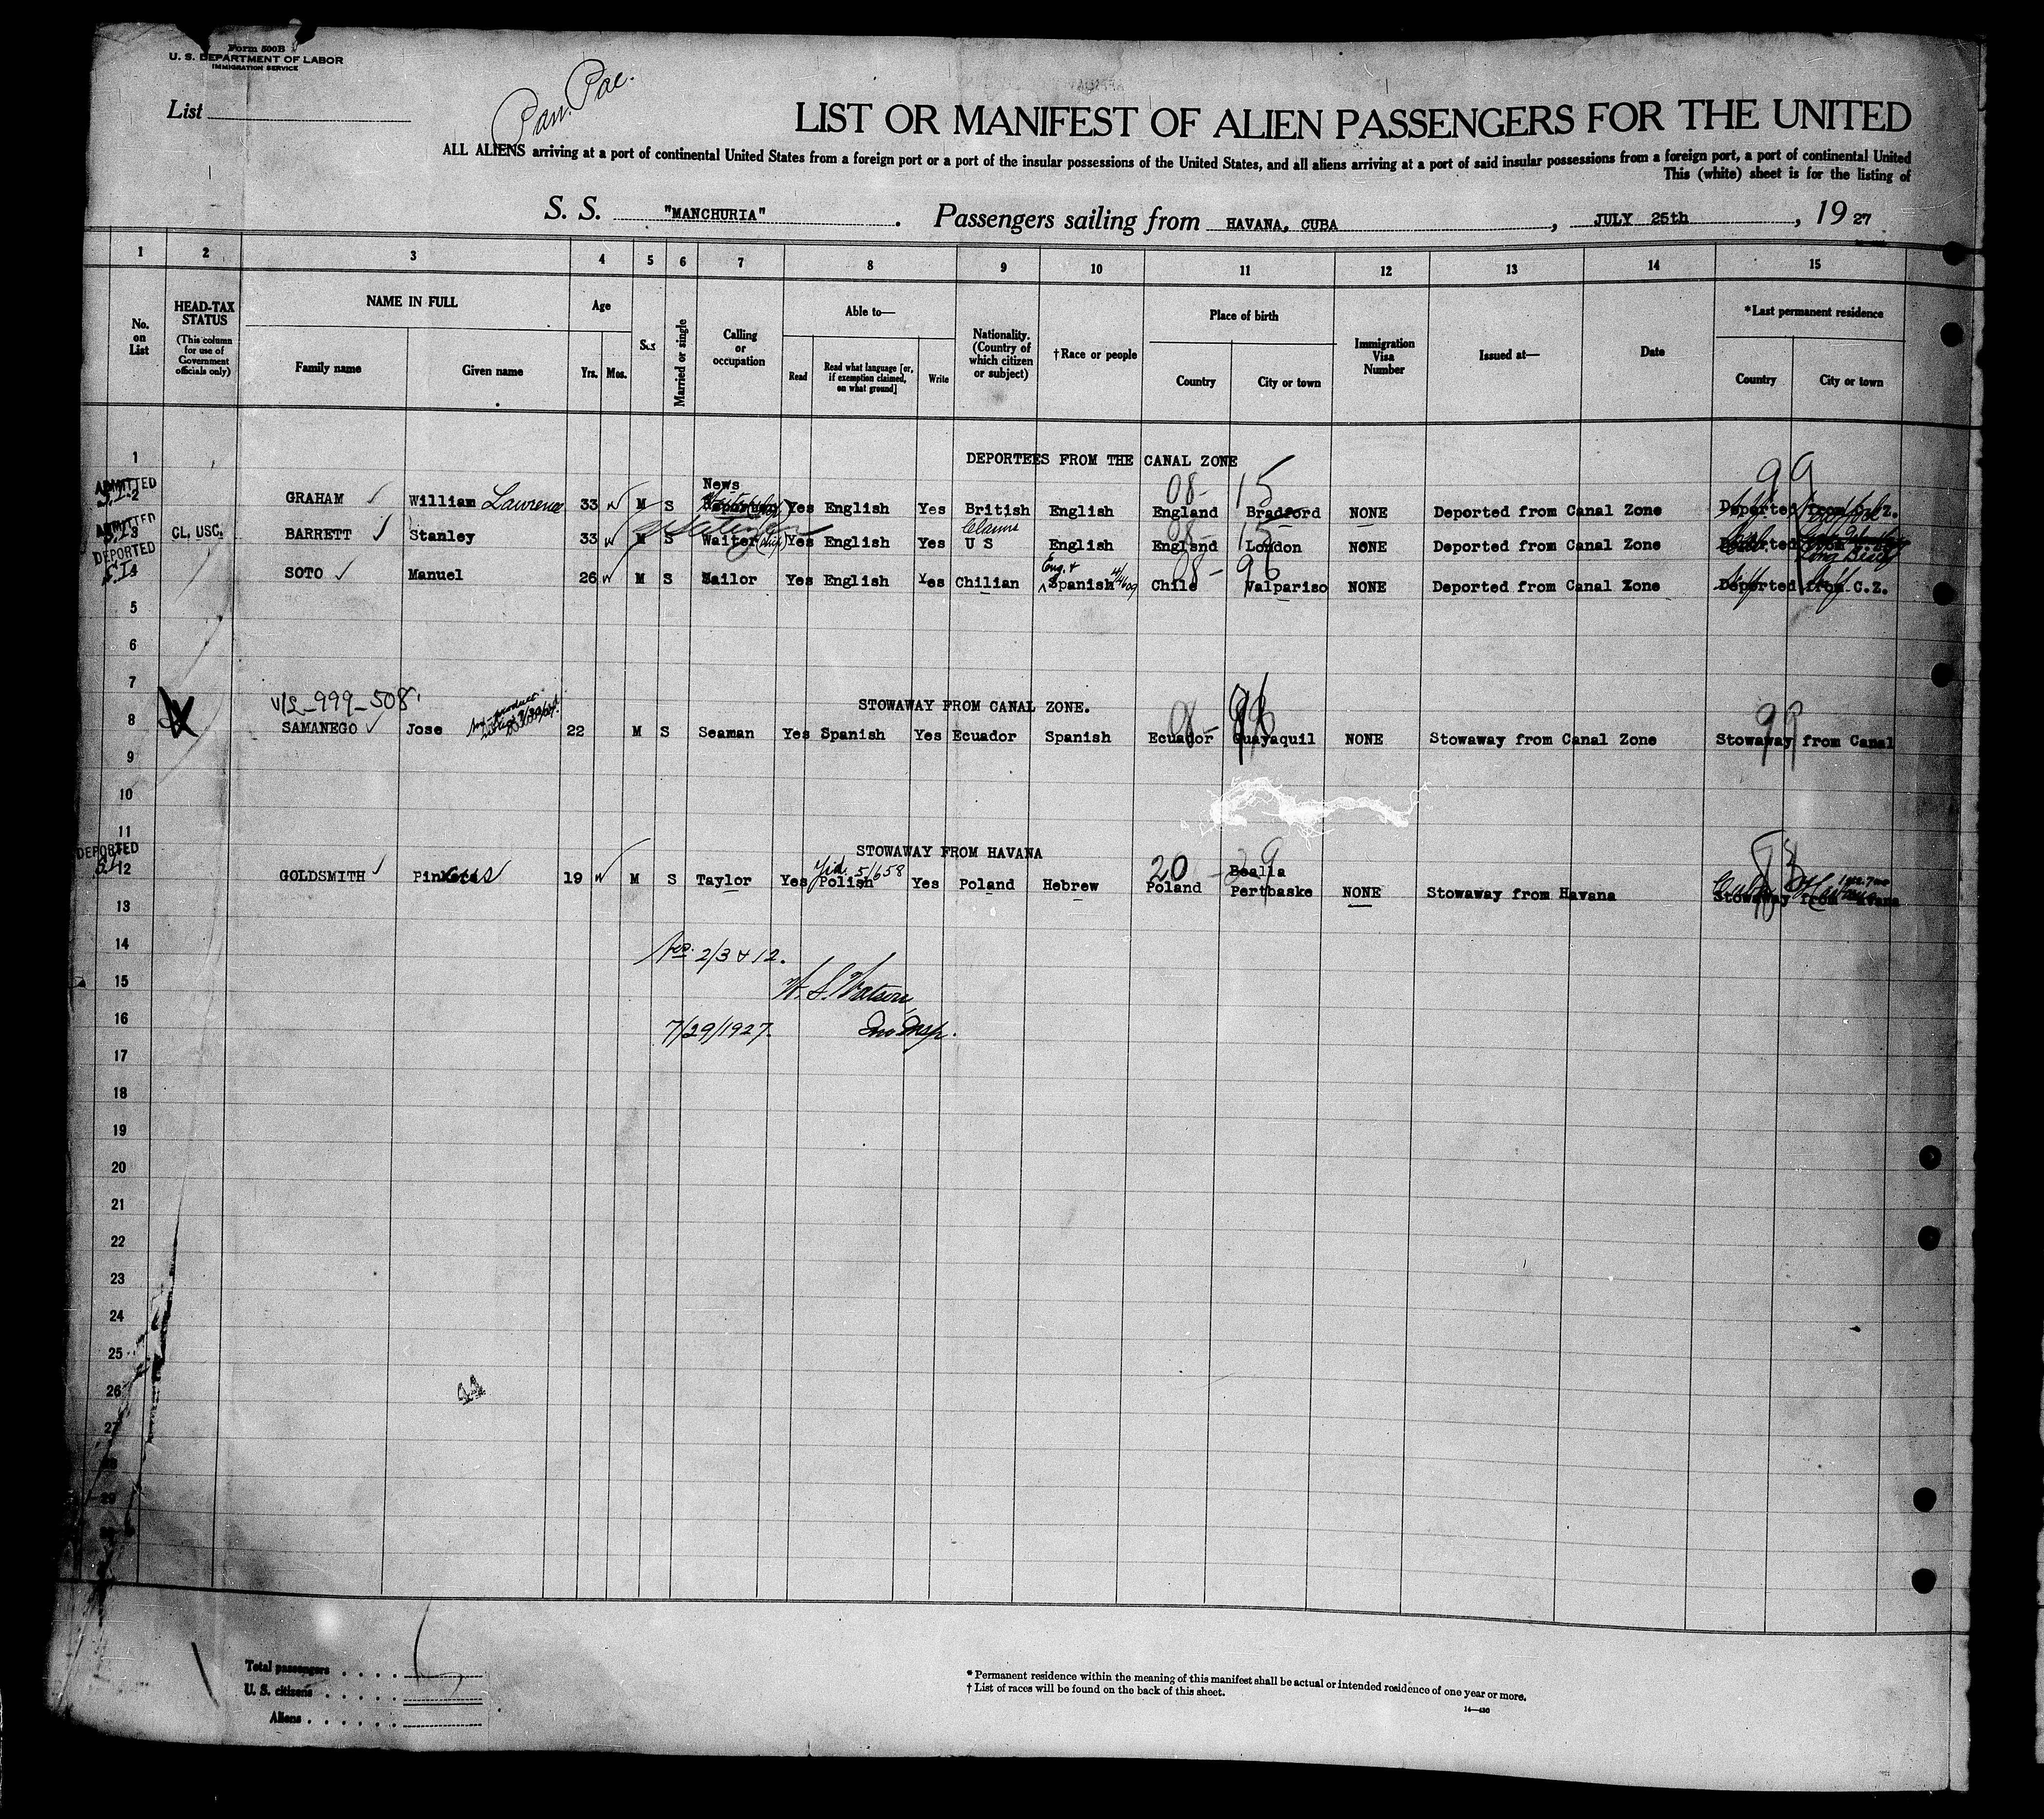 Form 500B
U. S. DEPARTMENT OF LABOR
IMMIGRATION SERVICE
List
Pan. Pac.
LIST OR MANIFEST OF ALIEN PASSENGERS FOR THE UNITED
ALL ALIENS arriving at a port of continental United States from a foreign port or a port of the insular possessions of the United States, and all aliens arriving at a port of said insular possessions from a foreign port, a port of continental United
This (white) sheet is for the listing of
S. S. "MANCHURIA". Passengers sailing from HAVANA, CUBA, JULY 25th, 19 27
1 2 3 4 5 6 7 8 9 10 11 12 13 14 15
No. on List
HEAD-TAX STATUS
(This column for use of Government officials only)
NAME IN FULL
Family name
Given name
Age
Yrs. Mos.
Sex
Married or single
Calling or occupation
Able to—
Read
Read what language [or, if exemption claimed, on what ground]
Write
Nationality. (Country of which citizen or subject)
†Race or people
Place of birth
Country
City or town
Immigration Visa Number
Issued at—
Date
*Last permanent residence
Country
City or town
1 DEPORTEES FROM THE CANAL ZONE
99
ADMITTED
News
08- 15
2 GRAHAM William Lawrence 33 M S Yes English Yes British English England Bradford NONE Deported from Canal Zone Deported from C.Z.
ADMITTED
Claims
08- 15
3 CL. USC. BARRETT Stanley 33 M S Waiter Yes English Yes U S English England London NONE Deported from Canal Zone Deported from
DEPORTED
Eng. +
08-96
4 SOTO Manuel 26 M S Sailor Yes English Yes Chilian Spanish Chile Valpariso NONE Deported from Canal Zone Deported from C.Z.
5
6
7 STOWAWAY FROM CANAL ZONE.
V/2-999-508
08-96
99
8 SAMANEGO Jose 22 M S Seaman Yes Spanish Yes Ecuador Spanish Ecuador Guayaquil NONE Stowaway from Canal Zone Stowaway from Canal
9
10
11 STOWAWAY FROM HAVANA
DEPORTED
Yid. 5/658
20 -29
83
Bealia
12 GOLDSMITH Pinkus 19 M S Taylor Yes Polish Yes Poland Hebrew Poland Pertbaske NONE Stowaway from Havana Stowaway from Havana
Cuba Havana
13
14 Nos. 2/3 & 12.
15 W. S. Watson
16 7/29/1927. Imm Insp.
17
18
19
20
21
22
23
24
25
26
27
28
29
30
Total passengers
U. S. citizens
Aliens
* Permanent residence within the meaning of this manifest shall be actual or intended residence of one year or more.
† List of races will be found on the back of this sheet.
14—430